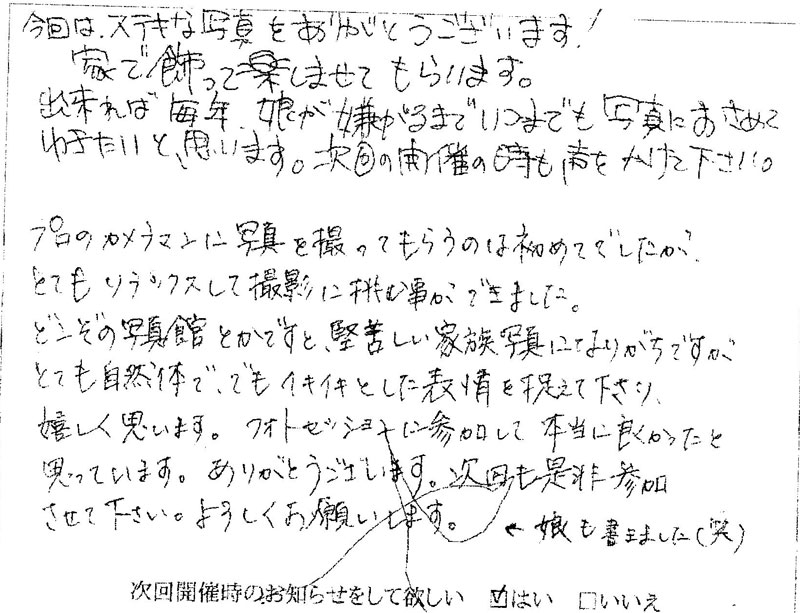 今回は、ステキな写真をありがとうございます!
家で飾って楽しませてもらいます。
出来れば毎年、娘が嫌がるまでいつまでも写真におさめて
ゆきたいと、思います。次回の開催の時も声をかけて下さい。
プロのカメラマンに写真を撮ってもらうのは初めてでしたが、
とてもリラックスして撮影に挑む事ができました。
どこぞの写真館とかですと、堅苦しい家族写真になりがちですが
とても自然体で、でもイキイキとした表情を捉えて下さり、
嬉しく思います。フォトセッションに参加して本当に良くかったと
思っています。ありがとうございます。次回も是非参加
させて下さい。よろしくお願いします。
← 娘も書きました(笑)
次回開催時のお知らせをして欲しい ☑はい □いいえ